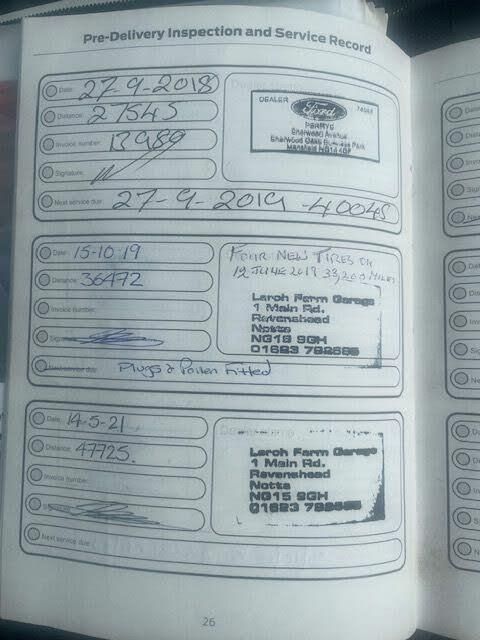 Pre-Delivery Inspection and Service Record
Date: 27-9-2018
Distance: 27545
Invoice number: 13989
Signature:
Next service due: 27-9-2019 40045
DEALER
Ford
PERRYS
Sherwood Avenue
Sherwood Oaks Business Park
Mansfield NG18 4GF
Date: 15-10-19
Distance: 36472
Invoice number:
Signature:
Next service due: Plugs & Pollen Fitted
FOUR NEW TIRES ON
12 JUNE 2019 33,200 MILES
Larch Farm Garage
1 Main Rd.
Ravenshead
Notts
NG15 9GH
01623 792585
Date: 14-5-21
Distance: 47725.
Invoice number:
Signature:
Next service due:
Larch Farm Garage
1 Main Rd.
Ravenshead
Notts
NG15 9GH
01623 792585
26